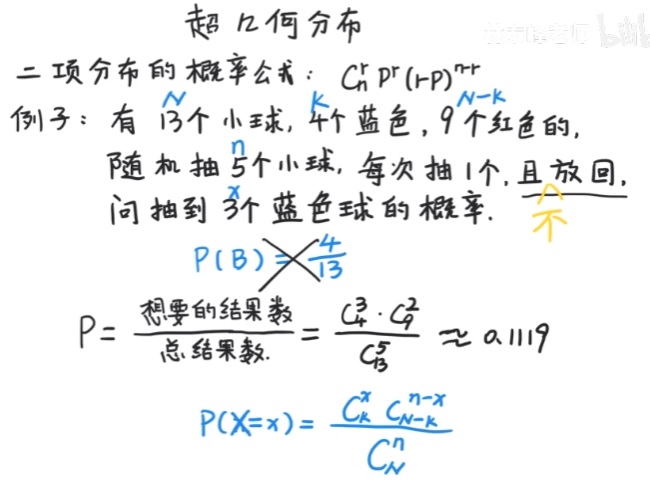 超几何分布
二项分布的概率公式: C_n^r P^r (1-P)^{n-r}
N K N-K
例子: 有13个小球, 4个蓝色, 9个红色的,
n
随机抽5个小球, 每次抽1个, 且放回,
x 不
问抽到3个蓝色球的概率.
P(B) = 4/13
P = 想要的结果数/总结果数. = C_4^3 · C_9^2 / C_13^5 ≈ 0.1119
P(X=x) = C_K^x C_{N-K}^{n-x} / C_N^n